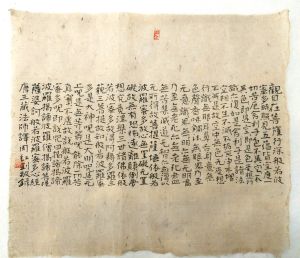 觀自在菩薩行深般若波
羅蜜多時照見五蘊皆空度
一切苦厄舍利子色不異空空不
異色色即是空空即是色受想行
識亦復如是舍利子是諸法空
相不生不滅不垢不淨不增
不減是故空中无色无受想
行識无眼耳鼻舌身意无
色聲香味觸法无眼界乃至
无意識界无无明亦无无明盡
乃至无老死亦无老死盡
无苦集滅道无智亦无得以
无所得故菩提薩埵依般若
波羅蜜多故心无罣礙无罣
礙故无有恐怖遠離顛倒夢
想究竟涅槃三世諸佛依般
若波羅蜜多故得阿耨多羅
三藐三菩提故知般若波羅蜜
多是大神呪是大明呪是无
上呪是无等等呪能除一切苦
真實不虛故說般若波羅
蜜多呪即說呪曰揭諦揭諦
波羅揭諦波羅僧揭諦菩提
薩婆訶般若波羅蜜多心經
唐三藏法師譯